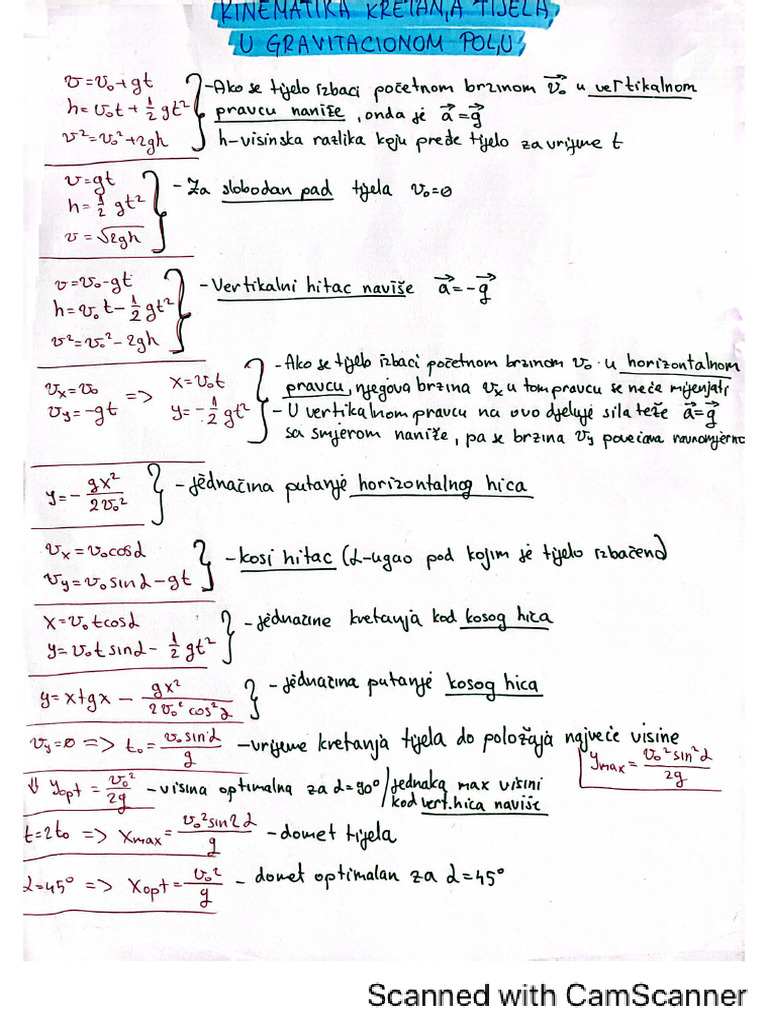 KINEMATIKA KRETANJA TIJELA
U GRAVITACIONOM POLJU
v=v₀+gt
h=v₀t+½gt²
v²=v₀²+2gh
-Ako se tijelo izbaci početnom brzinom v₀→ u vertikalnom
pravcu naniže, onda je a→=g→
h-visinska razlika koju pređe tijelo za vrijeme t
v=gt
h=½gt²
v=√2gh
-Za slobodan pad tijela v₀=0
v=v₀-gt
h=v₀t-½gt²
v²=v₀²-2gh
-Vertikalni hitac naviše a→=-g→
vx=v₀
vy=-gt
=>
x=v₀t
y=-½gt²
-Ako se tijelo izbaci početnom brzinom v₀ u horizontalnom
pravcu, njegova brzina vx u tom pravcu se neće mijenjati
-U vertikalnom pravcu na ovo djeluje sila teže a→=g→
sa smjerom naniže, pa se brzina vy povećava ravnomjerno
y=-gx²/2v₀²
-jednačina putanje horizontalnog hica
vx=v₀cosα
vy=v₀sinα-gt
-kosi hitac (α-ugao pod kojim je tijelo izbačeno)
x=v₀tcosα
y=v₀tsinα-½gt²
-jednačine kretanja kod kosog hica
y=xtgx-gx²/2v₀²cos²α
-jednačina putanje kosog hica
vy=0 => t₀=v₀sinα/g -vrijeme kretanja tijela do položaja najveće visine
ymax=v₀²sin²α/2g
⇓ yopt=v₀²/2g -visina optimalna za α=90°/jednaka max visini
kod vert.hica naviše
t=2t₀ => xmax=v₀²sin2α/g -domet tijela
α=45° => xopt=v₀²/g - domet optimalan za α=45°
Scanned with CamScanner